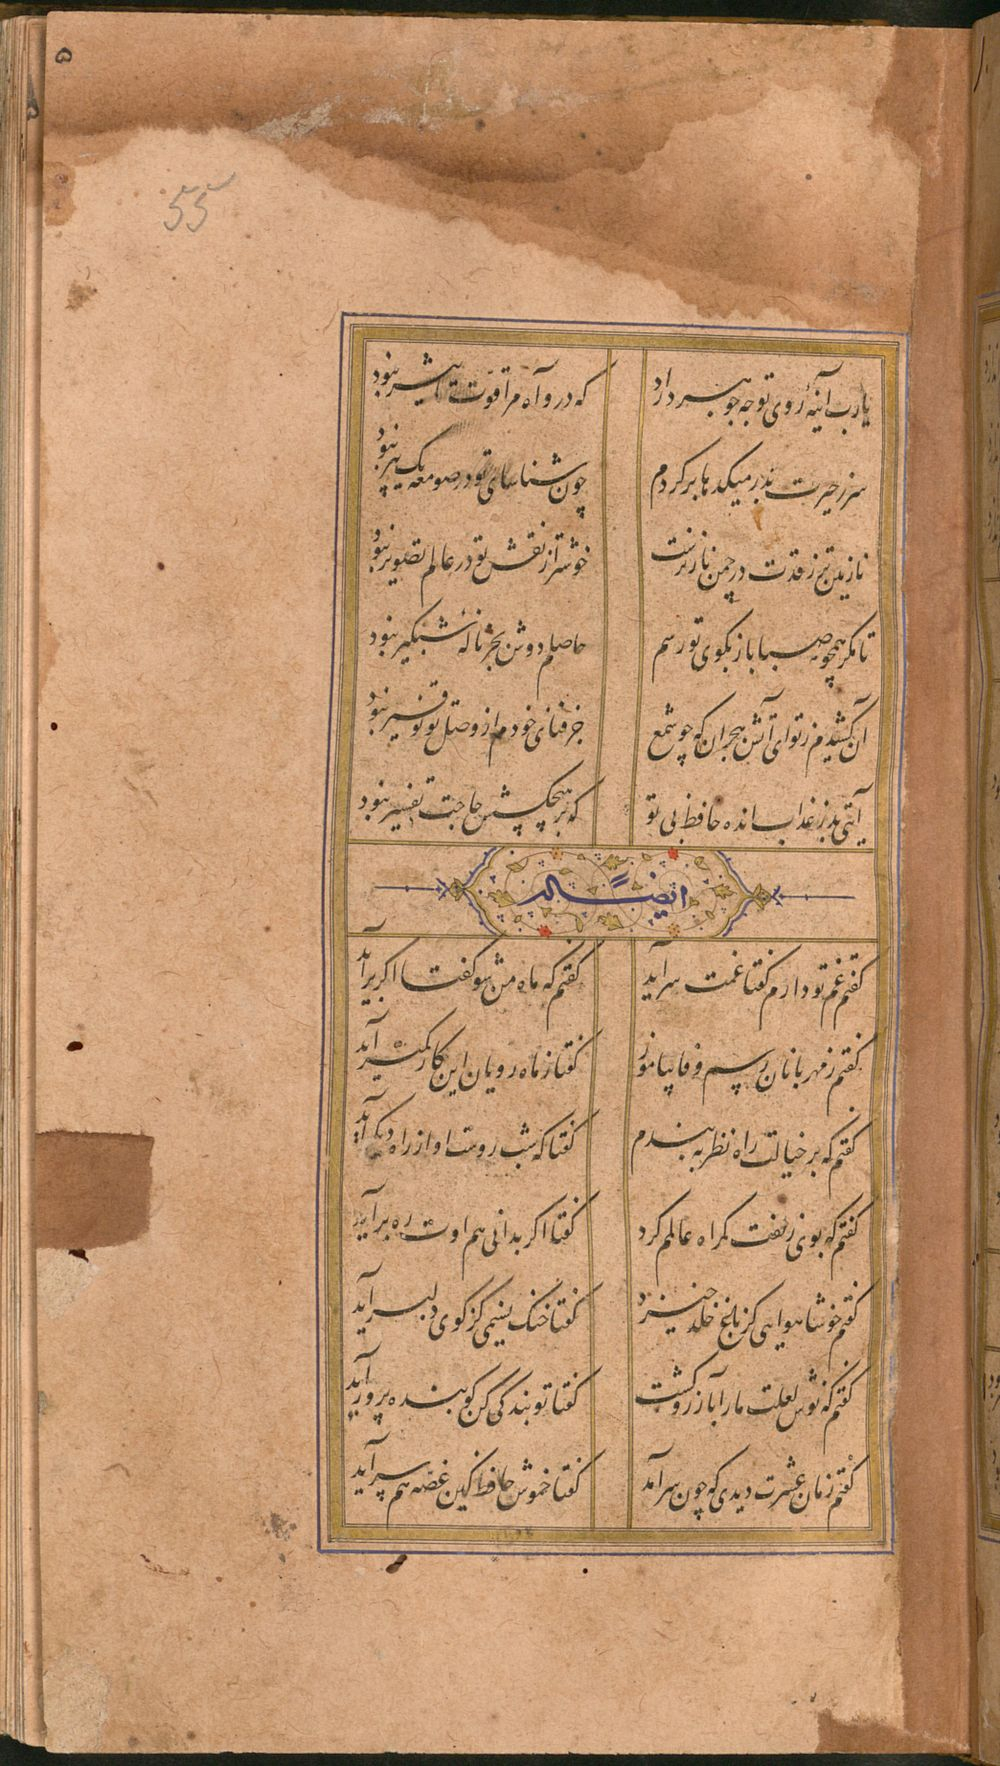 55
یارب آینهٔ روی تو چه جوهر دارد
که درو آه مرا قوت تاثیر نبود
سر ز حیرت بدر میکدها بر کردم
چون شناسای تو در صومعه یک پیر نبود
نازنین تر ز قدت در چمن ناز نرست
خوشتر از نقش تو در عالم تصویر نبود
تا مکر همچو صبا باز بکوی تو رسم
حاصلم دوش بجز نالهٔ شبکیر نبود
آن کشیدم ز تو ای آتش هجران که چو شمع
جز فنای خودم از وصل تو توفیر نبود
آیتی بد ز عذاب انده حافظ بی تو
که بر هیچکسش حاجت تفسیر نبود
ایضاً له
کفتم غم تو دارم کفتا غمت سر آید
کفتم که ماه من شو کفتا اکر بر آید
کفتم ز مهربانان رسم وفا بیاموز
کفتا ز ماه رویان این کار کمتر آید
کفتم که بر خیالت راه نظر به بندم
کفتا که شب روست او از راه دیکر آید
کفتم که بوی زلفت کمراه عالمم کرد
کفتا اکر بدانی هم اوت ره بر آید
کفتم خوشا هوایی کز باغ خلد خیزد
کفتا خنک نسیمی کز کوی دلبر آید
کفتم که نوش لعلت ما را بآرزو کشت
کفتا تو بندکی کن کو بنده پرور آید
کفتم زمان عشرت دیدی که چون سر آمد
کفتا خموش حافظ کین غصه هم سر آید